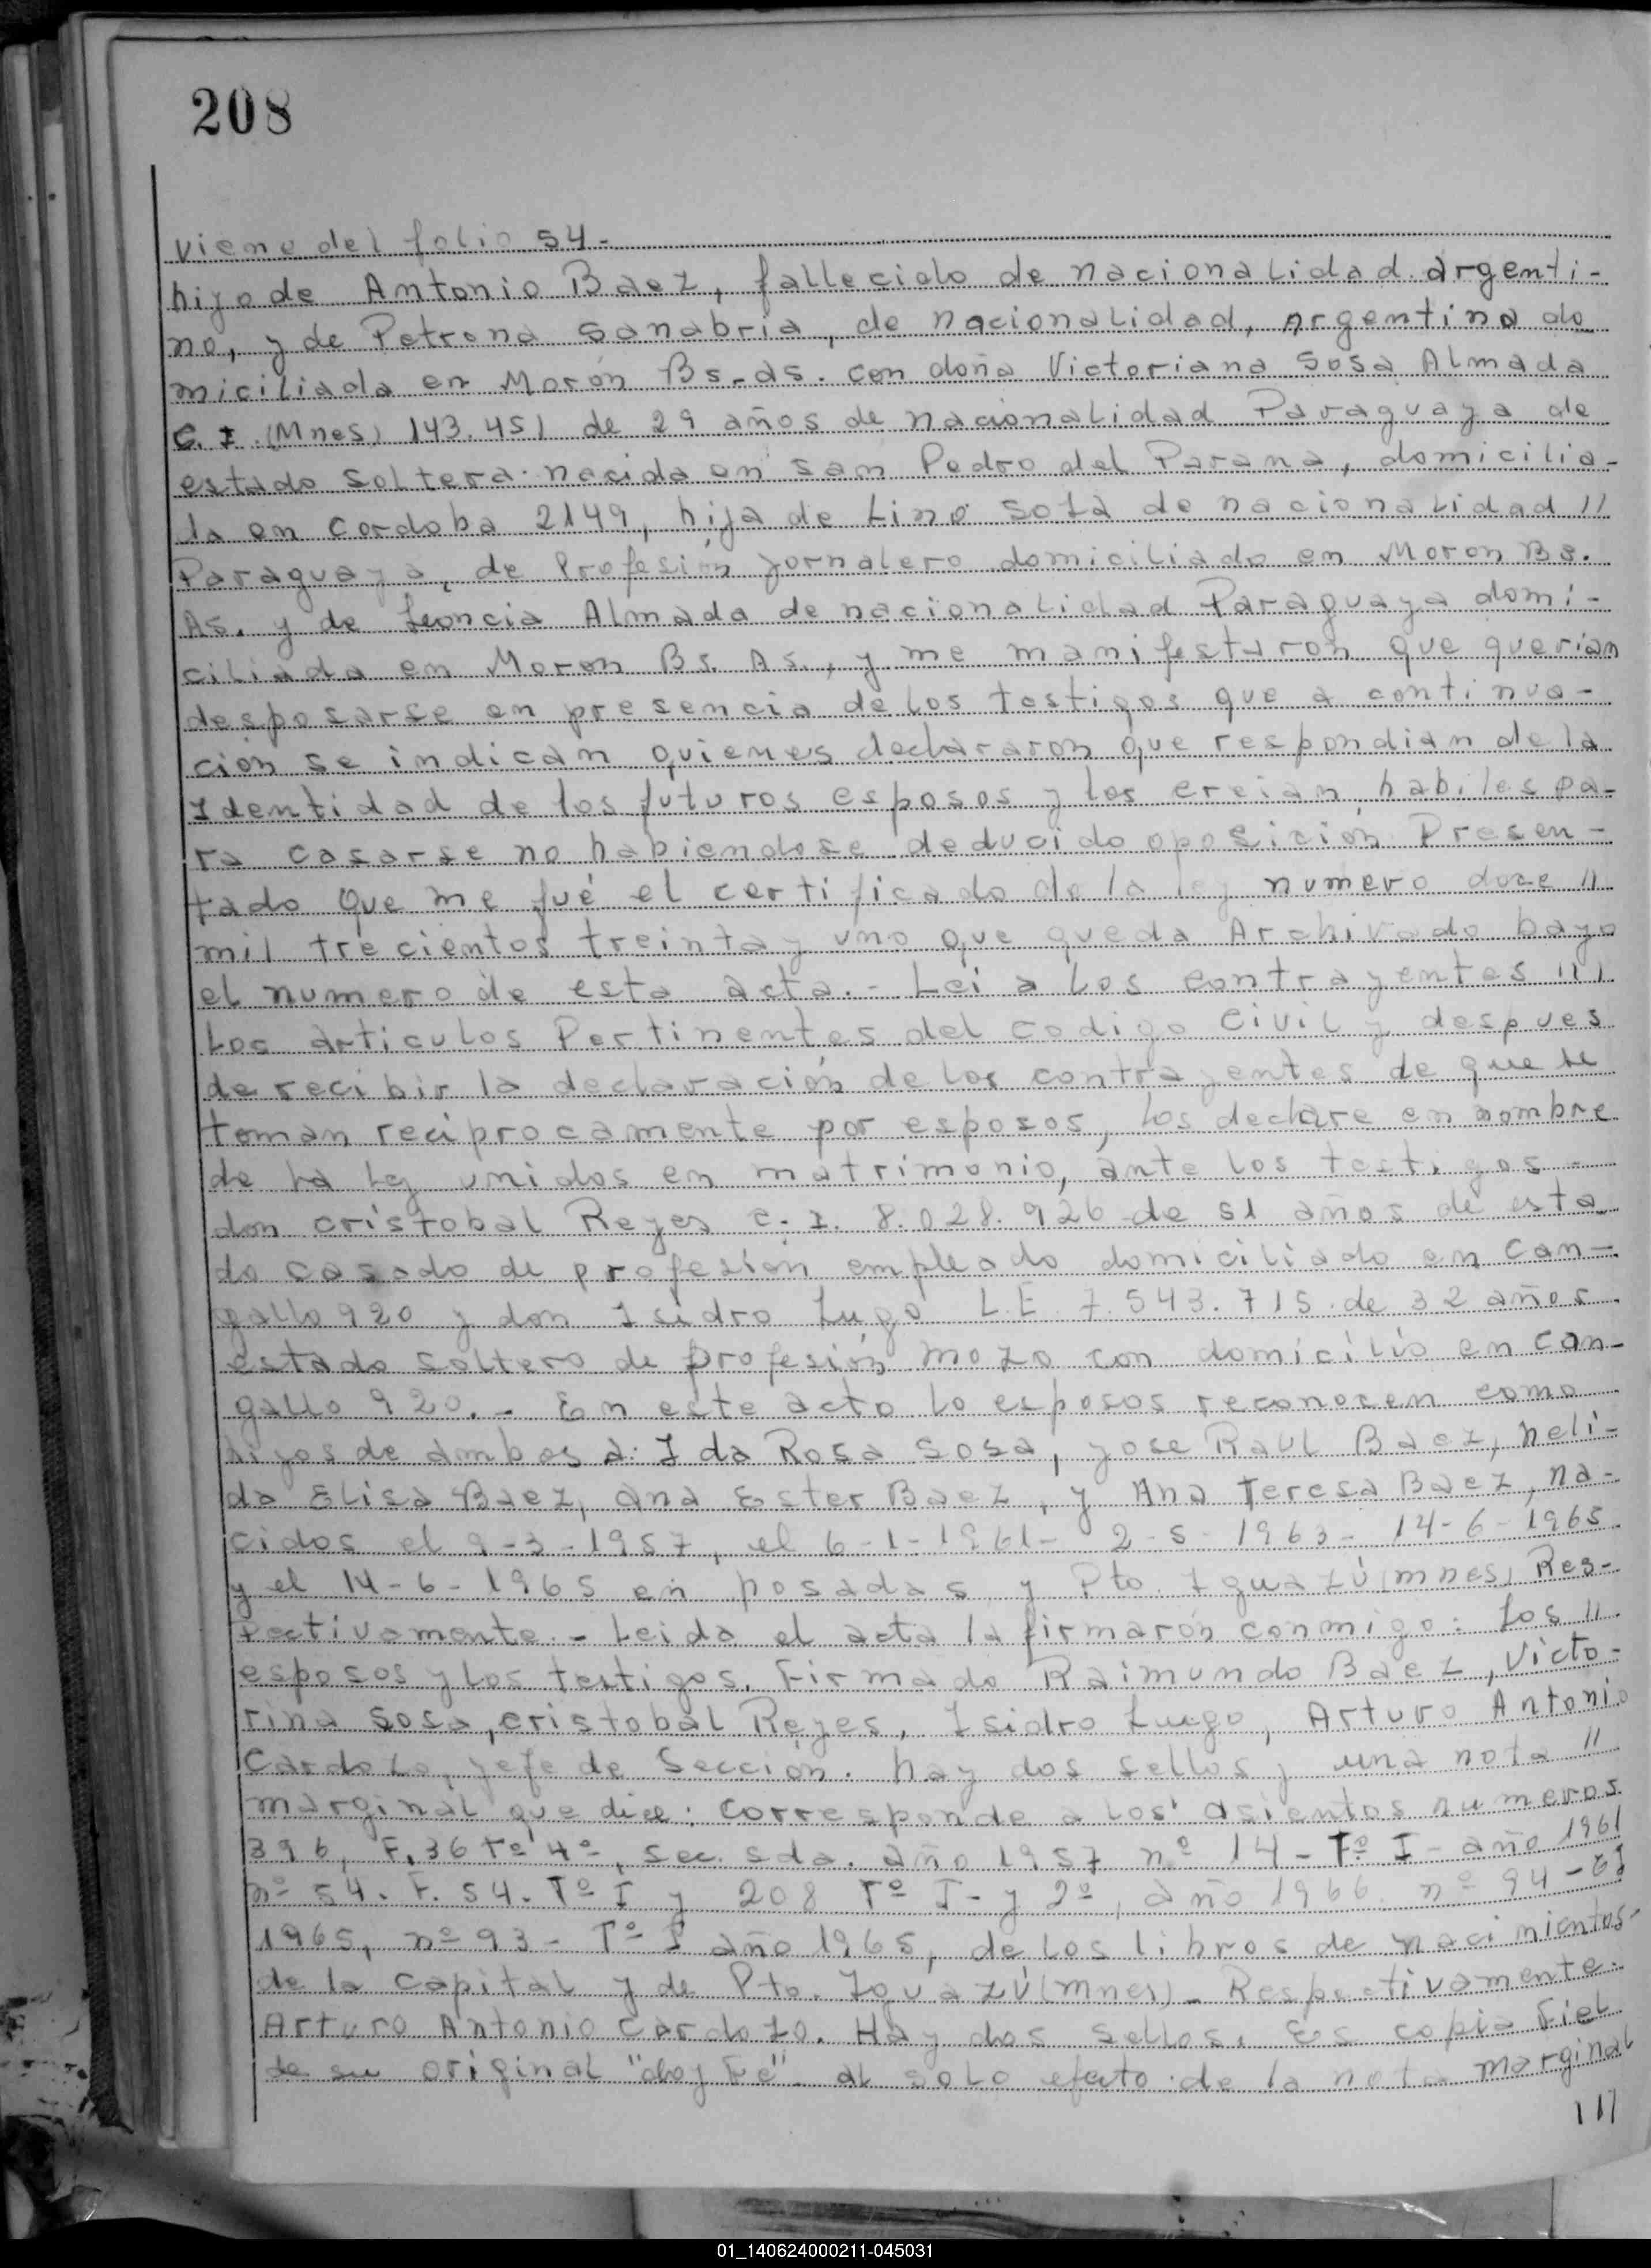 208
viene del folio 54.-
hijo de Antonio Baez, fallecido de nacionalidad argenti-
no, y de Petrona Sanabria, de nacionalidad, Argentina do
miciliada en Morón Bs-as. con doña Victoriana Sosa Almada
C. I. (Mnes) 143.451 de 29 años de nacionalidad Paraguaya de
estado soltera. nacida en san Pedro del Parana, domicilia-
da en cordoba 2149, hija de Lino Sosa de nacionalidad //
Paraguaya, de Profesión jornalero domiciliado en Moron Bs.
As. y de Leoncia Almada de nacionalidad Paraguaya domi-
ciliada en Moron Bs. As., y me manifestaron que querian
desposarse en presencia de los testigos que a continua-
ción se indican quienes declararon que respondian de la
Identidad de los futuros esposos y los creian habiles pa-
ra casarse no habiendose deducido oposición Presen-
tado que me fué el certificado de la ley numero doce //
mil trecientos treinta y uno que queda Archivado bayo
el numero de esta acta.- Leí a los contrayentes ///
los articulos Pertinentes del codigo Civil y despues
de recibir la declaración de los contrayentes de que se
toman reciprocamente por esposos, los declare en nombre
de la ley unidos en matrimonio, ante los testigos -
don cristobal Reyes c. I. 8.028.926 de 51 años de esta
do casado de profesión empleado domiciliado en Can-
gallo 920 y don Isidro Lugo L.E. 7.543.715 de 32 años
estado soltero de profesión mozo con domicilio en Can-
gallo 920.- En este acto lo esposos reconocen como
hijos de ambos a: Ida Rosa Sosa, jose Raul Baez, neli-
da Elisa Baez, ana Ester Baez, y Ana Teresa Baez, na-
cidos el 9-3-1957, el 6-1-1961- 2-5-1963- 14-6-1965
y el 14-6-1965 en posadas y Pto. Iguazú (mnes) Res-
pectivamente.- Leida el acta la firmarón conmigo: Los //
esposos y los testigos. Firmado Raimundo Baez, Victo-
rina Sosa, cristobal Reyes, Isidro Luego, Arturo Antonio
Cardozo, jefe de Sección. hay dos sellos y una nota //
marginal que dice: corresponde a los asientos numeros
396, F. 36 Tº 4º, sec. sda. año 1957 nº 14 - Tº I - año 1961
nº 54. F. 54. Tº I y 208 Tº I - y 2º, año 1966. nº 94 -
1965, nº 93 - Tº I año 1965, de los libros de nacimientos
de la capital y de Pto. Iguazú (mnes)- Respectivamente.
Arturo Antonio Cardozo. Hay dos sellos. Es copia Fiel
de su original "doy Fe". al solo efecto de la nota marginal
///
01_140624000211-045031